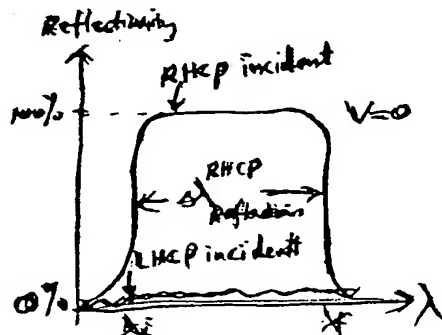 Reflectivity
RHCP incident
100%
V=0
RHCP
Δλ
Reflection
LHCP incident
0%
λ